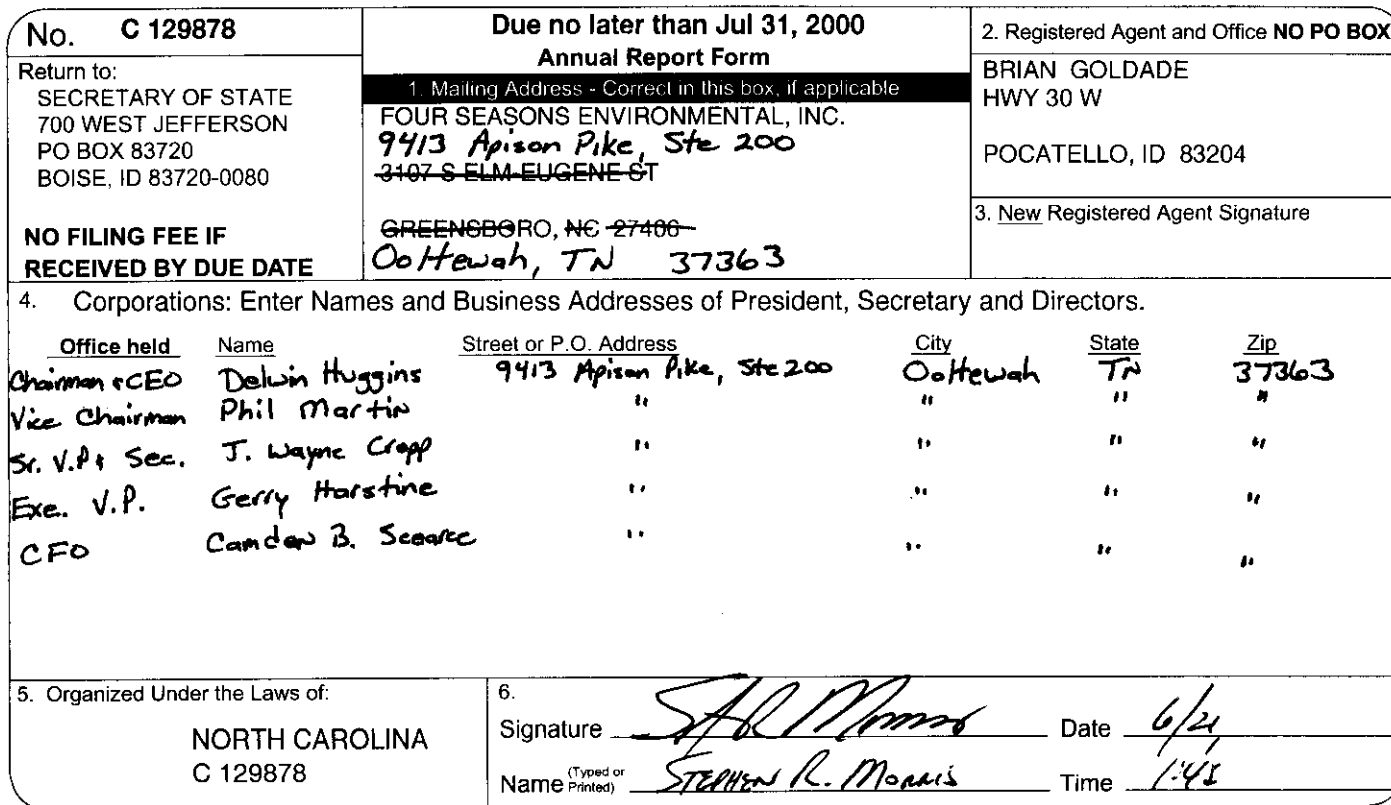 No. C 129878
Return to:
SECRETARY OF STATE
700 WEST JEFFERSON
PO BOX 83720
BOISE, ID 83720-0080
NO FILING FEE IF
RECEIVED BY DUE DATE
Due no later than Jul 31, 2000
Annual Report Form
1. Mailing Address - Correct in this box, if applicable
FOUR SEASONS ENVIRONMENTAL, INC.
9413 Apison Pike, Ste 200
3107 S ELM-EUGENE ST
GREENSBORO, NC 27406
Ooltewah, TN 37363
2. Registered Agent and Office NO PO BOX
BRIAN GOLDADE
HWY 30 W
POCATELLO, ID 83204
3. New Registered Agent Signature
4. Corporations: Enter Names and Business Addresses of President, Secretary and Directors.
Office held Name Street or P.O. Address City State Zip
Chairman & CEO Delwin Huggins 9413 Apison Pike, Ste 200 Ooltewah TN 37363
Vice Chairman Phil Martin " " " "
Sr. V.P & Sec. J. Wayne Cropp " " " "
Exe. V.P. Gerry Harstine " " " "
CFO Camden B. Scearce " " " "
5. Organized Under the Laws of:
NORTH CAROLINA
C 129878
6.
Signature Date 6/21
Name (Typed or Printed) STEPHEN R. MORRIS Time